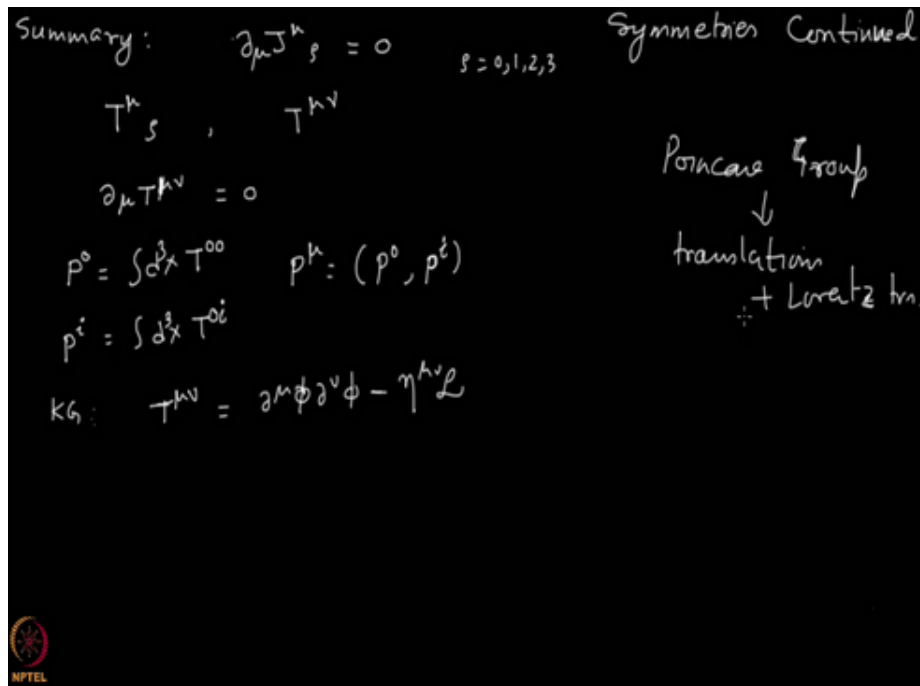 Summary: ∂_μ J^μ_ρ = 0
ρ = 0,1,2,3
Symmetries Continued
T^μ_ρ , T^{μν}
∂_μ T^{μν} = 0
P^0 = ∫d^3x T^{00} P^μ = (P^0, P^i)
P^i = ∫d^3x T^{0i}
KG: T^{μν} = ∂^μϕ∂^νϕ − η^{μν}ℒ
Poincare Group
↓
translation
+ Lorentz trn
NPTEL